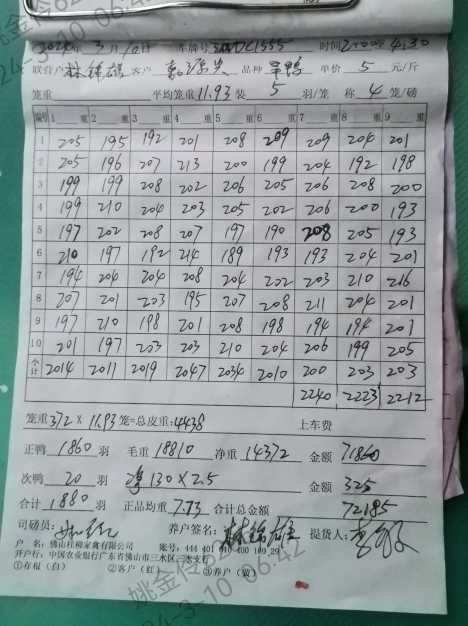 2024年3月10日 车牌号 时间 4:30
联营户 林锦雄 客户 品种 单价 5 元/斤
笼重 平均笼重 11.93 装 5 羽/笼 称 4 笼/磅
编号 1 重 2 重 3 重 4 重 5 重 6 重 7 重 8 重 9 重
1 205 195 192 201 208 209 209 204 201
2 205 196 207 213 200 199 204 192 198
3 199 199 208 202 206 205 206 208 200
4 199 210 204 203 205 202 206 200 193
5 197 202 208 207 197 190 208 205 193
6 210 197 192 214 189 193 193 204 201
7 194 204 204 208 204 202 203 210 216
8 207 201 203 195 207 208 211 204 201
9 197 210 198 201 208 198 194 194 201
10 201 197 203 203 210 204 206 199 205
合计 2014 2011 2019 2047 2034 2010 200 203 203
2240 2223 2212
笼重 372 × 11.93 笼=总皮重: 4438 上车费
正鸭 1860 羽 毛重 18810 净重 14372 金额 71860
次鸭 20 羽 净 130 × 2.5 金额 325
合计 1880 羽 正品均重 7.73 合计总金额 72185
司磅员: 养户签名: 林锦雄 提货人:
户 名: 佛山桂柳家禽有限公司 账号: 444 401 010 400 109 29
开户行: 中国农业银行广东省佛山市三水区 支行
①存根 (白) ②客户 (红) ③养户 (黄)
姚金伶
24-3-10 06:42